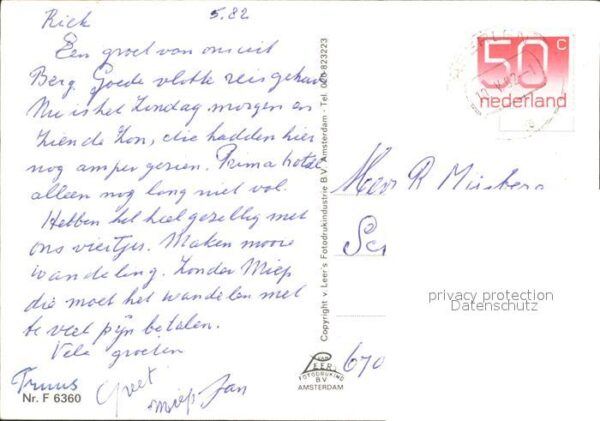 Rick 5.82
Een groet van ons uit
Berg. Goede vlotte reis gehad
Nu is het Zondag morgen en
zien de Zon, die hadden hier
nog amper gezien. Prima hotel
alleen nog lang niet vol.
Hebben het heel gezellig met
ons viertjes. Maken mooie
wandeling. Zonder Miep
die moet het wandelen met
te veel pijn betalen.
Vele groeten
Truus Greet Miep Jan
Nr. F 6360
Copyright v. Leer's Fotodrukindustrie B.V. Amsterdam - Tel. 020-823223
VAN LEER'S
FOTODRUKIND
B.V.
AMSTERDAM
50 c
nederland
Heer R
670
privacy protection
Datenschutz